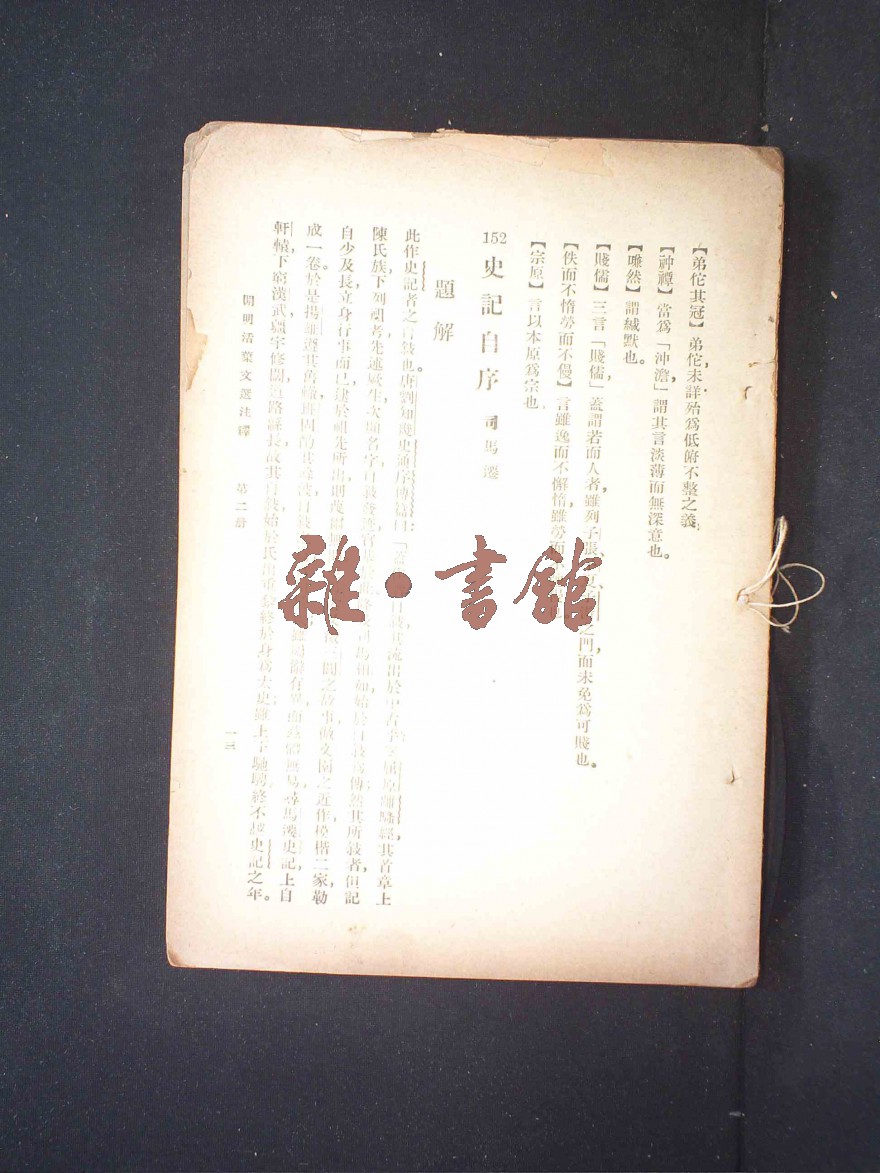 【弟佗其冠】弟佗，未詳，殆爲低俯不整之義。
【神禫】當爲「沖澹」，謂其言淡薄而無深意也。
【嗛然】謂緘默也。
【賤儒】三言「賤儒」，蓋謂若而人者，雖列子張、之門，而未免爲可賤也。
【佚而不惰勞而不僈】言雖逸而不懈惰，雖勞而
【宗原】言以本原爲宗也。
152 史記自序 司馬遷
題解
此作史記者之自敍也。唐劉知幾史通序傳篇曰：「自敍其流出於中古乎？屈原離騷經，其首章上
陳氏族，下列祖考；先述厥生，次顯名字。自敍發跡，司馬相如，始於自敍爲傳。然其所敍者，但記
自少及長，立身行事而已。逮於祖先所出，則之故事，倣文園之近作，模楷二家，勒
成一卷。於是揚雄遵其舊轍，班固酌其自敍有異，而茲體無易。尋馬遷史記，上自
軒轅，下窮漢武，疆宇修闊，道路緜長。故其自敍，始於氏出重黎，終於身爲太史。雖上下馳騁，終不越史記之年。
開明活葉文選注釋 第二册 一三
雜·書館